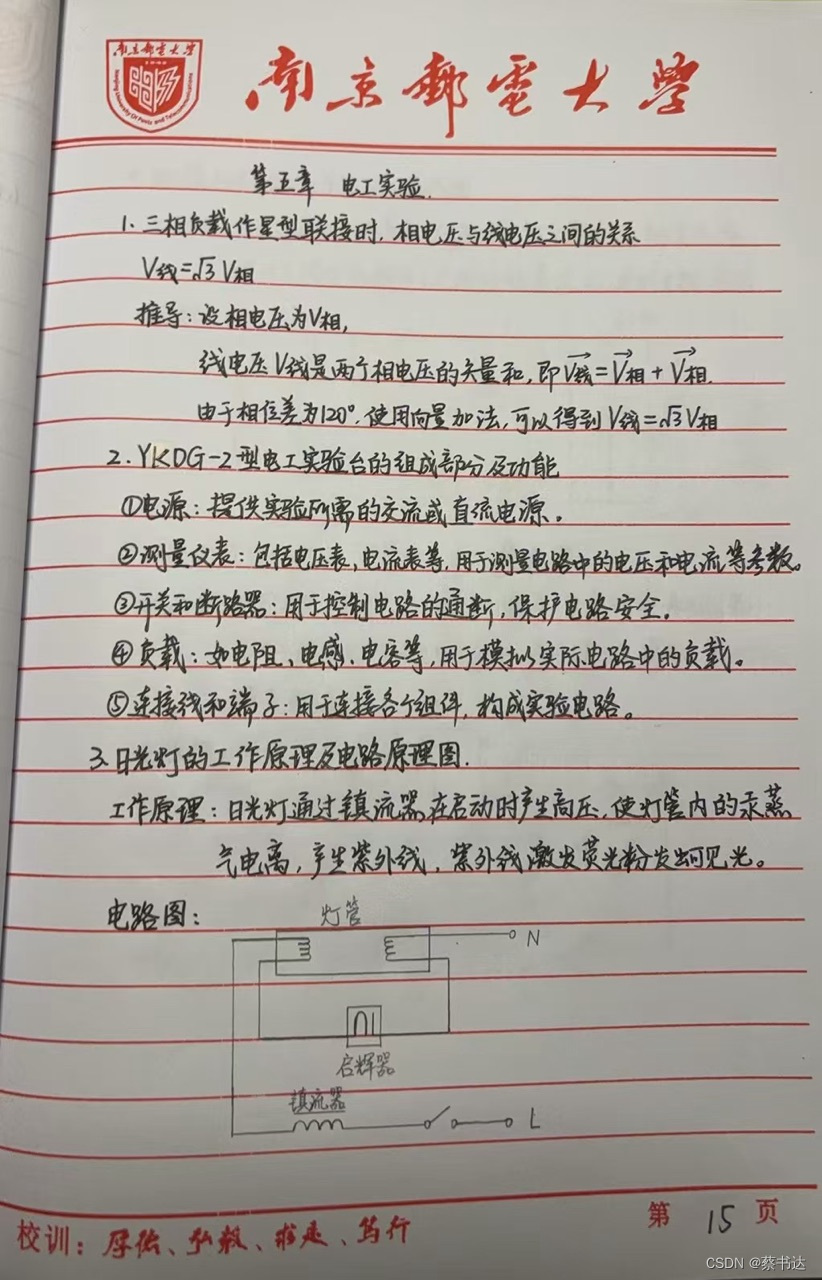 南京邮电大学
1942
Nanjing University Of Posts and Telecommunications
南京郵電大學
第五章 电工实验.
1. 三相负载作星型联接时, 相电压与线电压之间的关系
V线=√3 V相
推导: 设相电压为V相,
线电压V线是两个相电压的矢量和, 即V线=V相+V相.
由于相位差为120°, 使用向量加法, 可以得到V线=√3 V相
2. YKDG-2型电工实验台的组成部分及功能
①电源: 提供实验所需的交流或直流电源。
②测量仪表: 包括电压表, 电流表等, 用于测量电路中的电压和电流等参数。
③开关和断路器: 用于控制电路的通断, 保护电路安全。
④负载: 如电阻、电感、电容等, 用于模拟实际电路中的负载。
⑤连接线和端子: 用于连接各个组件, 构成实验电路。
3. 日光灯的工作原理及电路原理图.
工作原理: 日光灯通过镇流器在启动时产生高压, 使灯管内的汞蒸
气电离, 产生紫外线, 紫外线激发荧光粉发出可见光。
电路图:
灯管
N
启辉器
镇流器
L
校训: 厚德、弘毅、求是、笃行
第 15 页
CSDN @蔡书达